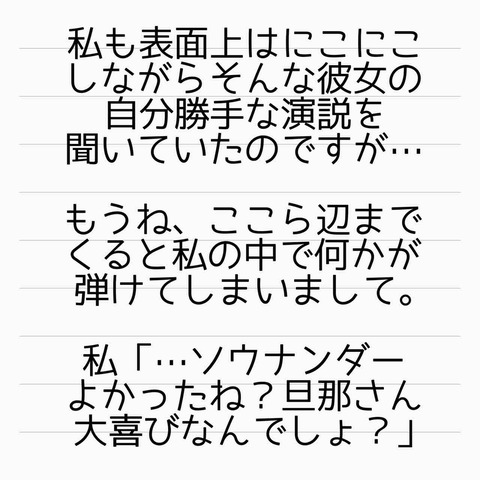 私も表面上はにこにこ
しながらそんな彼女の
自分勝手な演説を
聞いていたのですが…
もうね、ここら辺まで
くると私の中で何かが
弾けてしまいまして。
私「…ソウナンダー
よかったね？旦那さん
大喜びなんでしょ？」